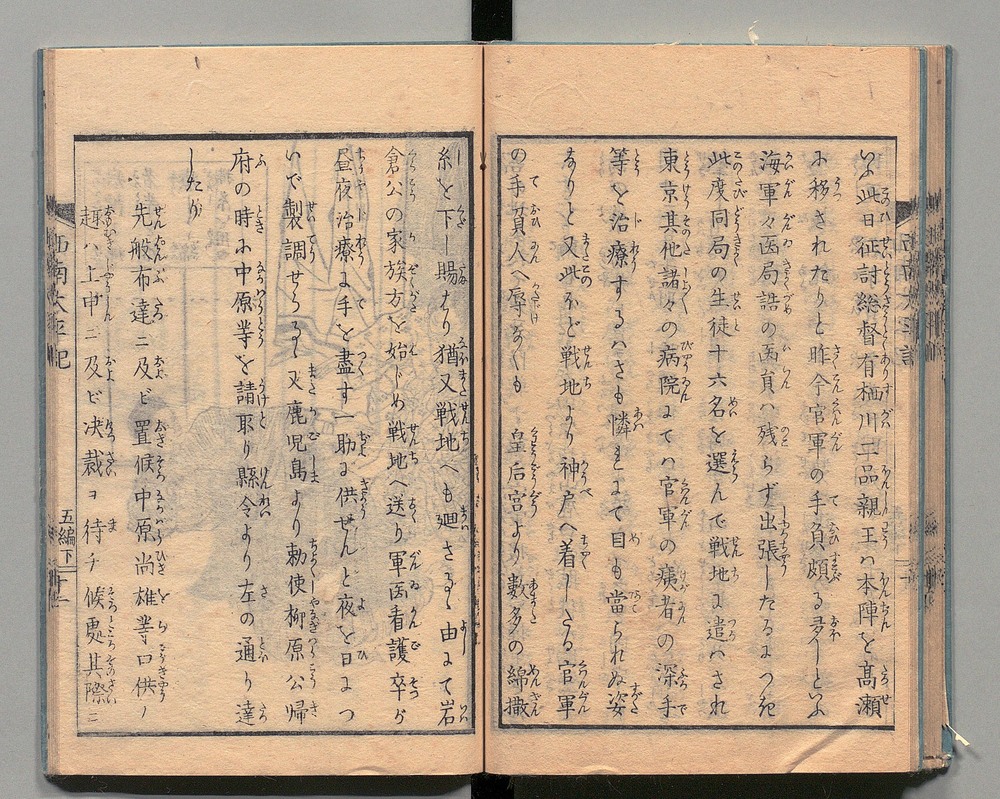 此日征討総督有栖川二品親王ハ本陣を髙瀬
に移されたりと昨今官軍の手負頗る多しといふ
海軍々医局詰の医員ハ残らず出張したるにつき
此度同局の生徒十六名を選んで戦地に遣ハされ
東京其他諸々の病院にてハ官軍の痍者の深手
等を治療するハさも憐れにて目も當られぬ姿
なりと又此ほど戦地より神戸へ着したる官軍
の手負人へ辱なくも 皇后宮より數多の綿撒
糸を下し賜はり猶又戦地へも廻さるゝ由にて岩
倉公の家族方を始じめ戦地へ送り軍医看護卒が
昼夜治療に手を盡す一助に供せんと夜を日につ
いで製調せらるゝ又鹿児島より勅使柳原公帰
府の時に中原等を請取り縣令より左の通り達
したり
先般布達ニ及ビ置候中原尚雄等口供ノ
趣ハ上申ニ及ビ决裁ヲ待チ候処其際ニ
西南太平記
五編下
十一